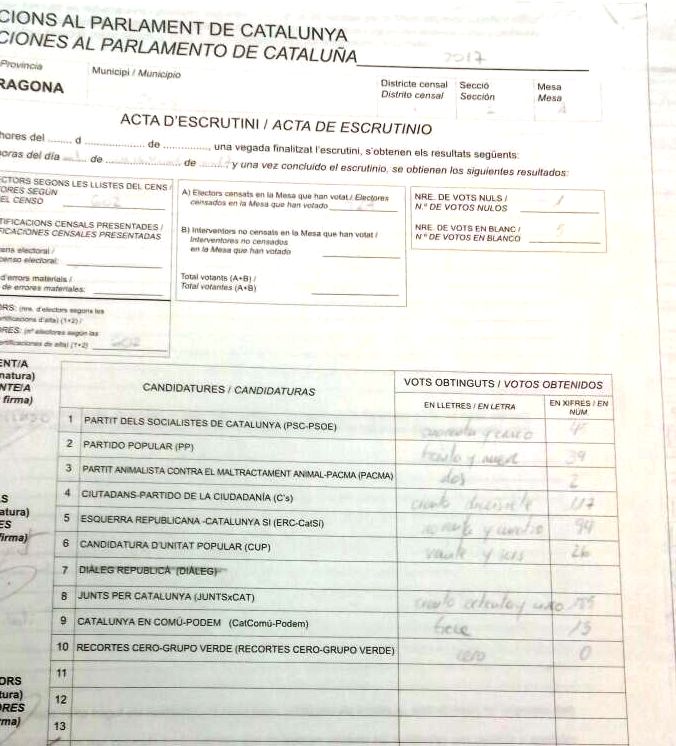 CIONS AL PARLAMENT DE CATALUNYA
CIONES AL PARLAMENTO DE CATALUÑA 2017
Provincia
RAGONA
Municipi / Municipio
Districte censal
Distrito censal
Secció
Sección
Mesa
Mesa
A
ACTA D'ESCRUTINI / ACTA DE ESCRUTINIO
hores del ........ d .................... de ................, una vegada finalitzat l'escrutini, s'obtenen els resultats següents:
oras del día ........ de .................... de ........, y una vez concluido el escrutinio, se obtienen los siguientes resultados:
ECTORS SEGONS LES LLISTES DEL CENS /
ORES SEGÚN
EL CENSO 602
TIFICACIONS CENSALS PRESENTADES /
FICACIONES CENSALES PRESENTADAS
ens electoral /
censo electoral:
d'errors materials /
de errores materiales:
ORS: (nre. d'electors segons les
rtificacions d'alta) (1+2) /
RES: (nº electores según las
ertificaciones de alta) (1+2) 602
A) Electors censats en la Mesa que han votat / Electores
censados en la Mesa que han votado
B) Interventors no censats en la Mesa que han votat /
Interventores no censados
en la Mesa que han votado
Total votants (A+B) /
Total votantes (A+B)
NRE. DE VOTS NULS /
N.º DE VOTOS NULOS 1
NRE. DE VOTS EN BLANC /
N.º DE VOTOS EN BLANCO 5
ENT/A
natura)
NTE/A
firma)
S
atura)
ES
firma)
ORS
tura)
ORES
ma)
CANDIDATURES / CANDIDATURAS
VOTS OBTINGUTS / VOTOS OBTENIDOS
EN LLETRES / EN LETRA
EN XIFRES / EN
NÚM
1 PARTIT DELS SOCIALISTES DE CATALUNYA (PSC-PSOE) cuarenta y cinco
2 PARTIDO POPULAR (PP) treinta y nueve 39
3 PARTIT ANIMALISTA CONTRA EL MALTRACTAMENT ANIMAL-PACMA (PACMA) dos 2
4 CIUTADANS-PARTIDO DE LA CIUDADANÍA (C's) ciento diecisiete 117
5 ESQUERRA REPUBLICANA -CATALUNYA SÍ (ERC-CatSí) noventa y cuatro 94
6 CANDIDATURA D'UNITAT POPULAR (CUP) veinte y seis 26
7 DIÀLEG REPUBLICÀ (DIÀLEG)
8 JUNTS PER CATALUNYA (JUNTSxCAT) ciento ochenta y
9 CATALUNYA EN COMÚ-PODEM (CatComú-Podem) trece 13
10 RECORTES CERO-GRUPO VERDE (RECORTES CERO-GRUPO VERDE) cero 0
11
12
13